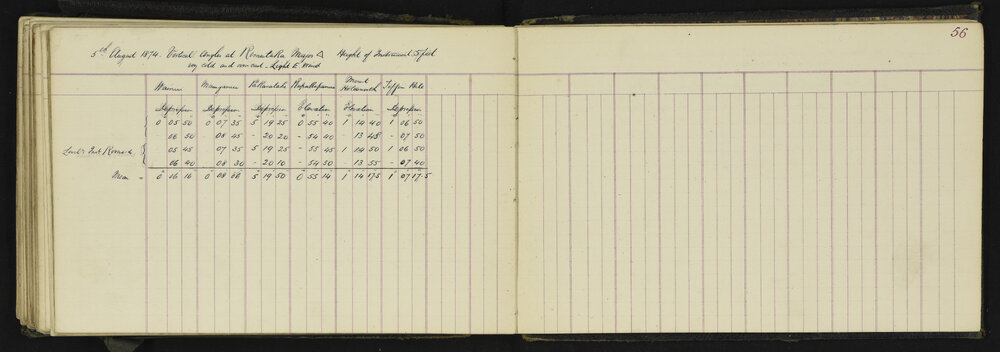 56
5th August 1874. Vertical Angles at Remutaka Major △ Height of Instrument 5 feet
very cold and overcast - Light E. Wind
Mount
Holdsworth
Depression Depression Depression Elevation Elevation Depression
0 05 50 0 07 35 5 19 25 0 55 40 1 14 40 1 06 50
06 50 - 08 45 - 20 20 - 54 40 - 13 45 - 07 50
- 05 45 07 35 5 19 25 - 55 45 1 14 50 1 06 50
06 40 - 08 30 - 20 10 - 54 50 - 13 55 - 07 40
Mean = 0 16 16 0 08 06 5 19 50 0 55 14 1 14 17.5 1 07 17.5